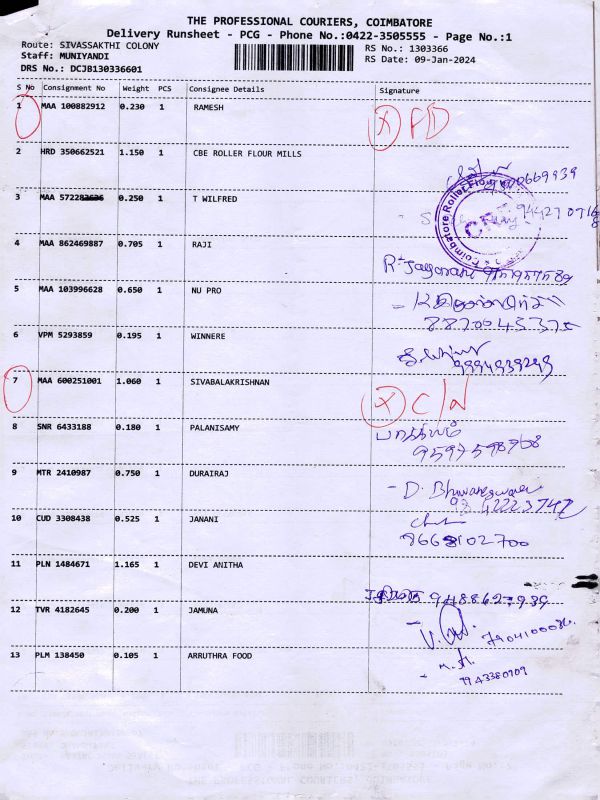 THE PROFESSIONAL COURIERS, COIMBATORE
Delivery Runsheet - PCG - Phone No.:0422-3505555 - Page No.:1
Route: SIVASSAKTHI COLONY
Staff: MUNIYANDI
DRS No.: DCJB130336601
RS No.: 1303366
RS Date: 09-Jan-2024
S No Consignment No Weight PCS Consignee Details Signature
1 MAA 100882912 0.230 1 RAMESH
X
2 HRD 350662521 1.150 1 CBE ROLLER FLOUR MILLS
3 MAA 0.250 1 T WILFRED
Coimbatore Roller Flour
4 MAA 862469887 0.705 1 RAJI
5 MAA 103996628 0.650 1 NU PRO
6 VPM 5293859 0.195 1 WINNERE
9994939243
7 MAA 600251001 1.060 1 SIVABALAKRISHNAN
X C/N
8 SNR 6433188 0.180 1 PALANISAMY
9597598968
9 MTR 2410987 0.750 1 DURAIRAJ
- D. Bhuvaneswari
10 CUD 3308438 0.525 1 JANANI
8668102700
11 PLN 1484671 1.165 1 DEVI ANITHA
12 TVR 4182645 0.200 1 JAMUNA
13 PLM 138450 0.105 1 ARRUTHRA FOOD
9943380909